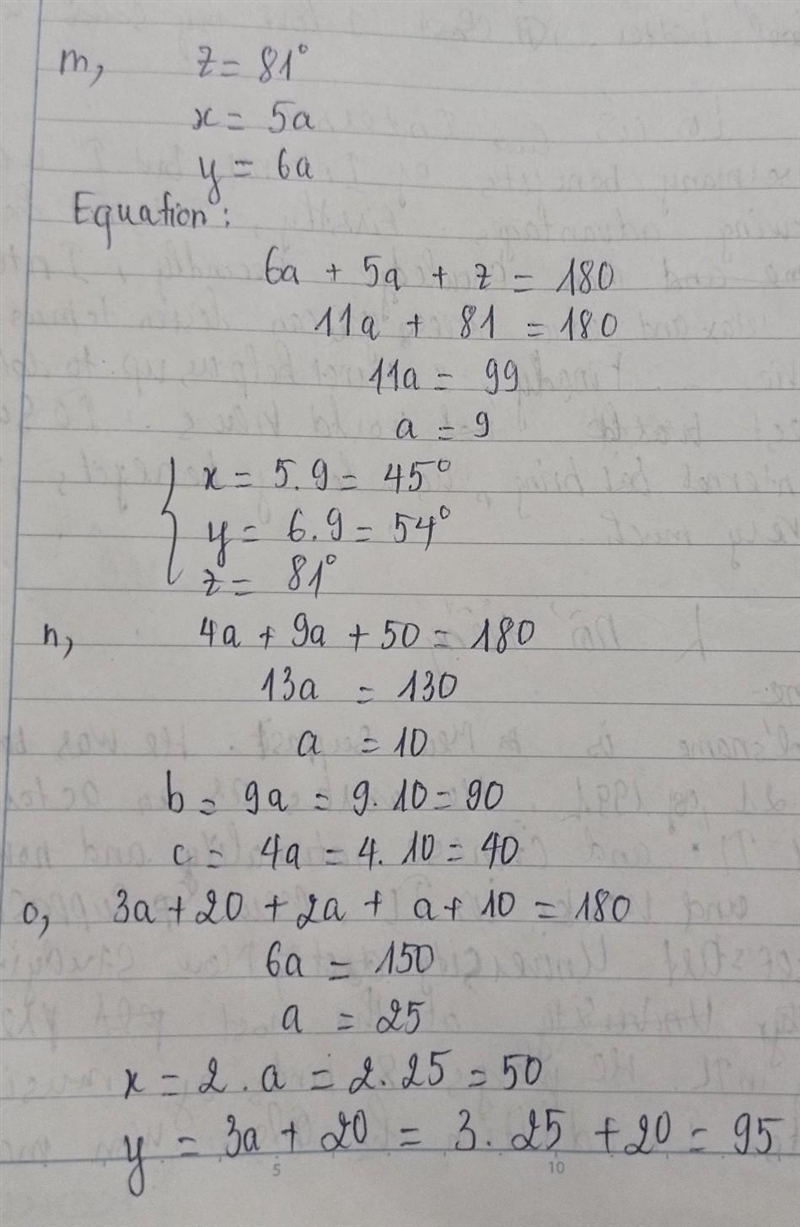 m, z = 81°
x = 5a
y = 6a
Equation:
6a + 5a + z = 180
11a + 81 = 180
11a = 99
a = 9
x = 5.9 = 45°
y = 6.9 = 54°
z = 81°
n, 4a + 9a + 50 = 180
13a = 130
a = 10
b = 9a = 9.10 = 90
c = 4a = 4.10 = 40
o, 3a + 20 + 2a + a + 10 = 180
6a = 150
a = 25
x = 2.a = 2.25 = 50
y = 3a + 20 = 3.25 + 20 = 95
5 10